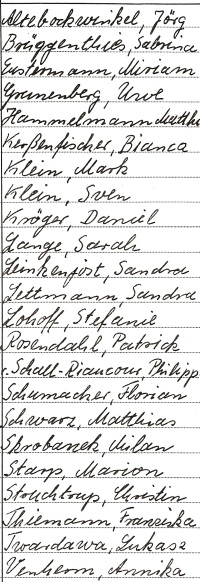 Altebockwinkel, Jörg
Brüggenthies, Sabrina
Eustermann, Miriam
Grunenberg, Uwe
Hammelmann Matthi
Kerßenfischer, Bianca
Klein, Mark
Klein, Sven
Kröger, Daniel
Lange, Sarah
Leinkenjost, Sandra
Lettmann, Sandra
Lohoff, Stefanie
Rosendahl, Patrick
v. Schall-Riaucour, Philipp
Schumacher, Florian
Schwarz, Matthias
Skrobanek, Milan
Starp, Marion
Stouchtrup, Christin
Thiemann, Franziska
Twardawa, Lukasz
Venherm, Annika